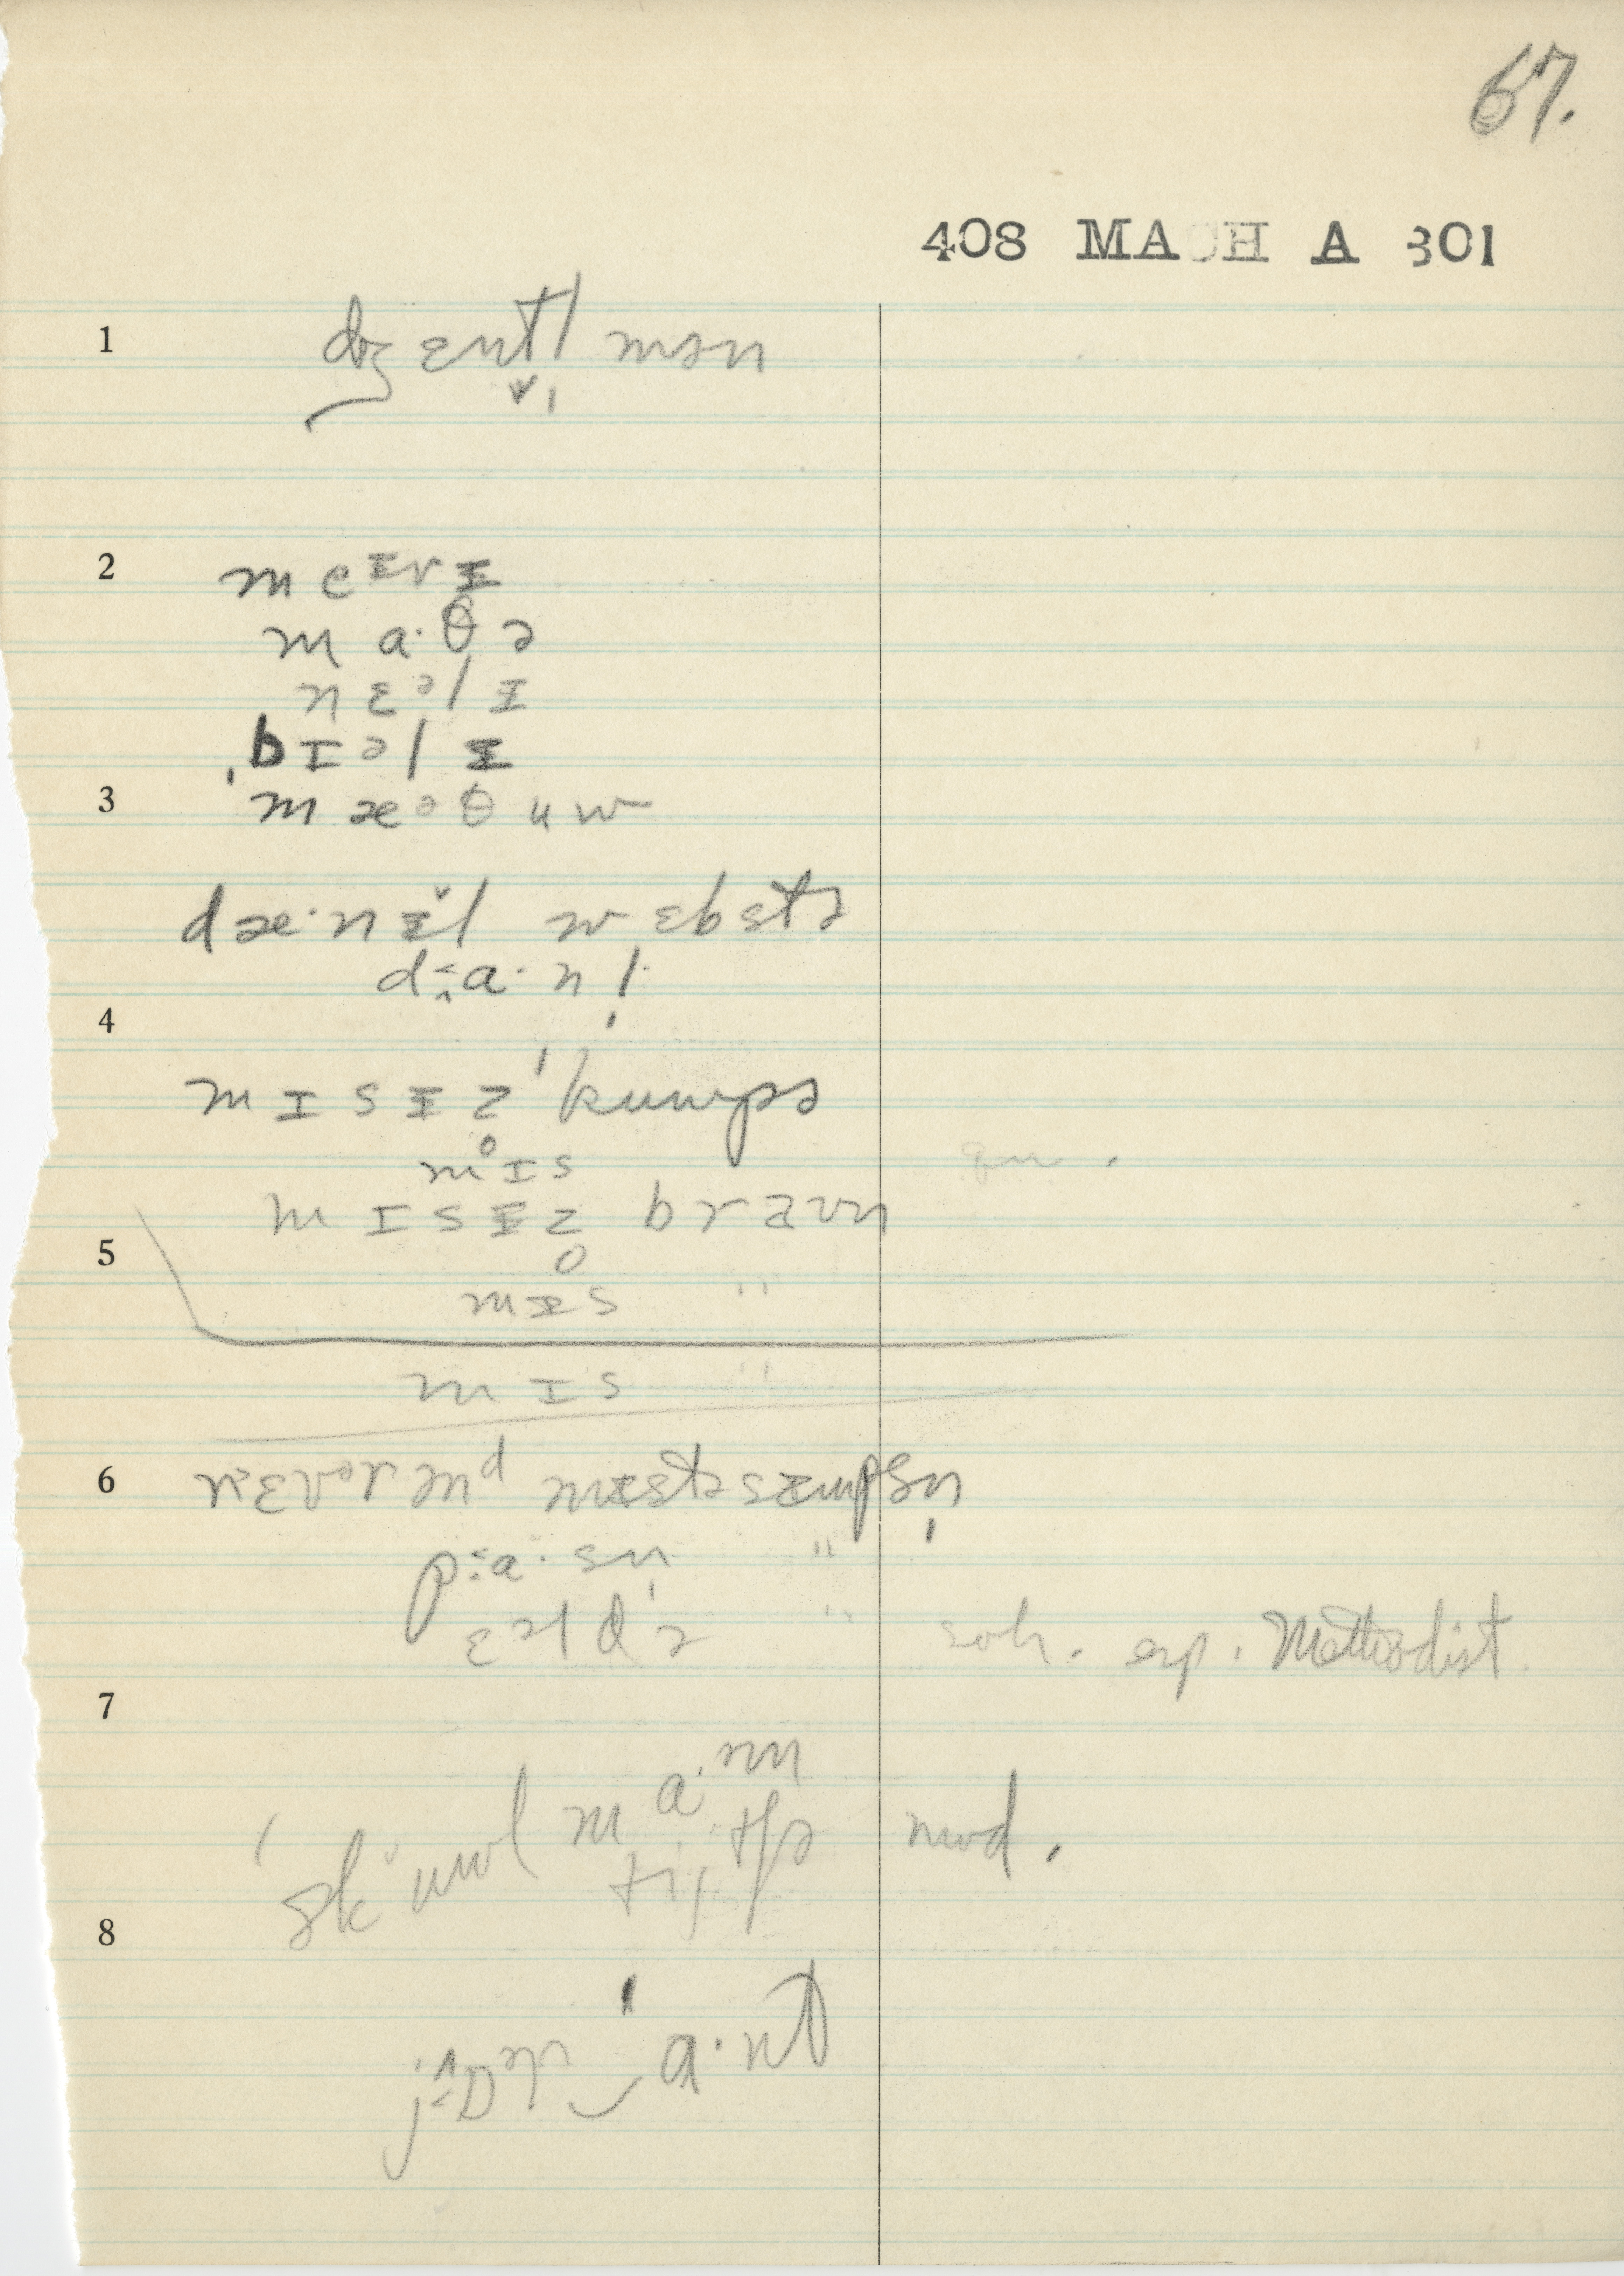 67.
408 MACH A 301
1 dʒɛntl̬̩mən
2 meɪrɪ̵
ma·θə
nɛəlɪ̵
bɪəlɪ̵
3 mæəθuw
dæ·nɪ̵̆l wɛbstə
da·nl̩
4
mɪsɪ̵z'kuwpə
mɪs
mɪsɪ̵z braʊn
5
mɪ̵s "
mɪs "
6 rɛvərənd mɪ̵stəsɪ̵mpsn̩
pa·sn̩ "
ɛəldə " soh. esp. Methodist.
7
'skuwl ma·m
titʃə mod.
8
jɒr a·nt